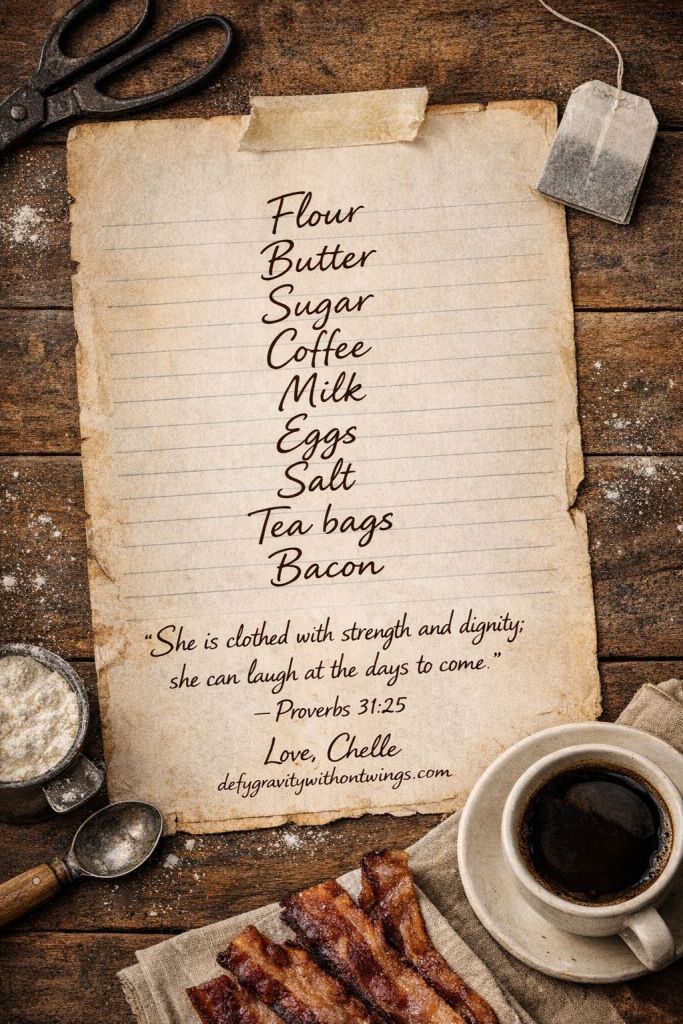 Flour
Butter
Sugar
Coffee
Milk
Eggs
Salt
Tea bags
Bacon
“She is clothed with strength and dignity;
she can laugh at the days to come.”
– Proverbs 31:25
Love, Chelle
defygravitywithontwings.com